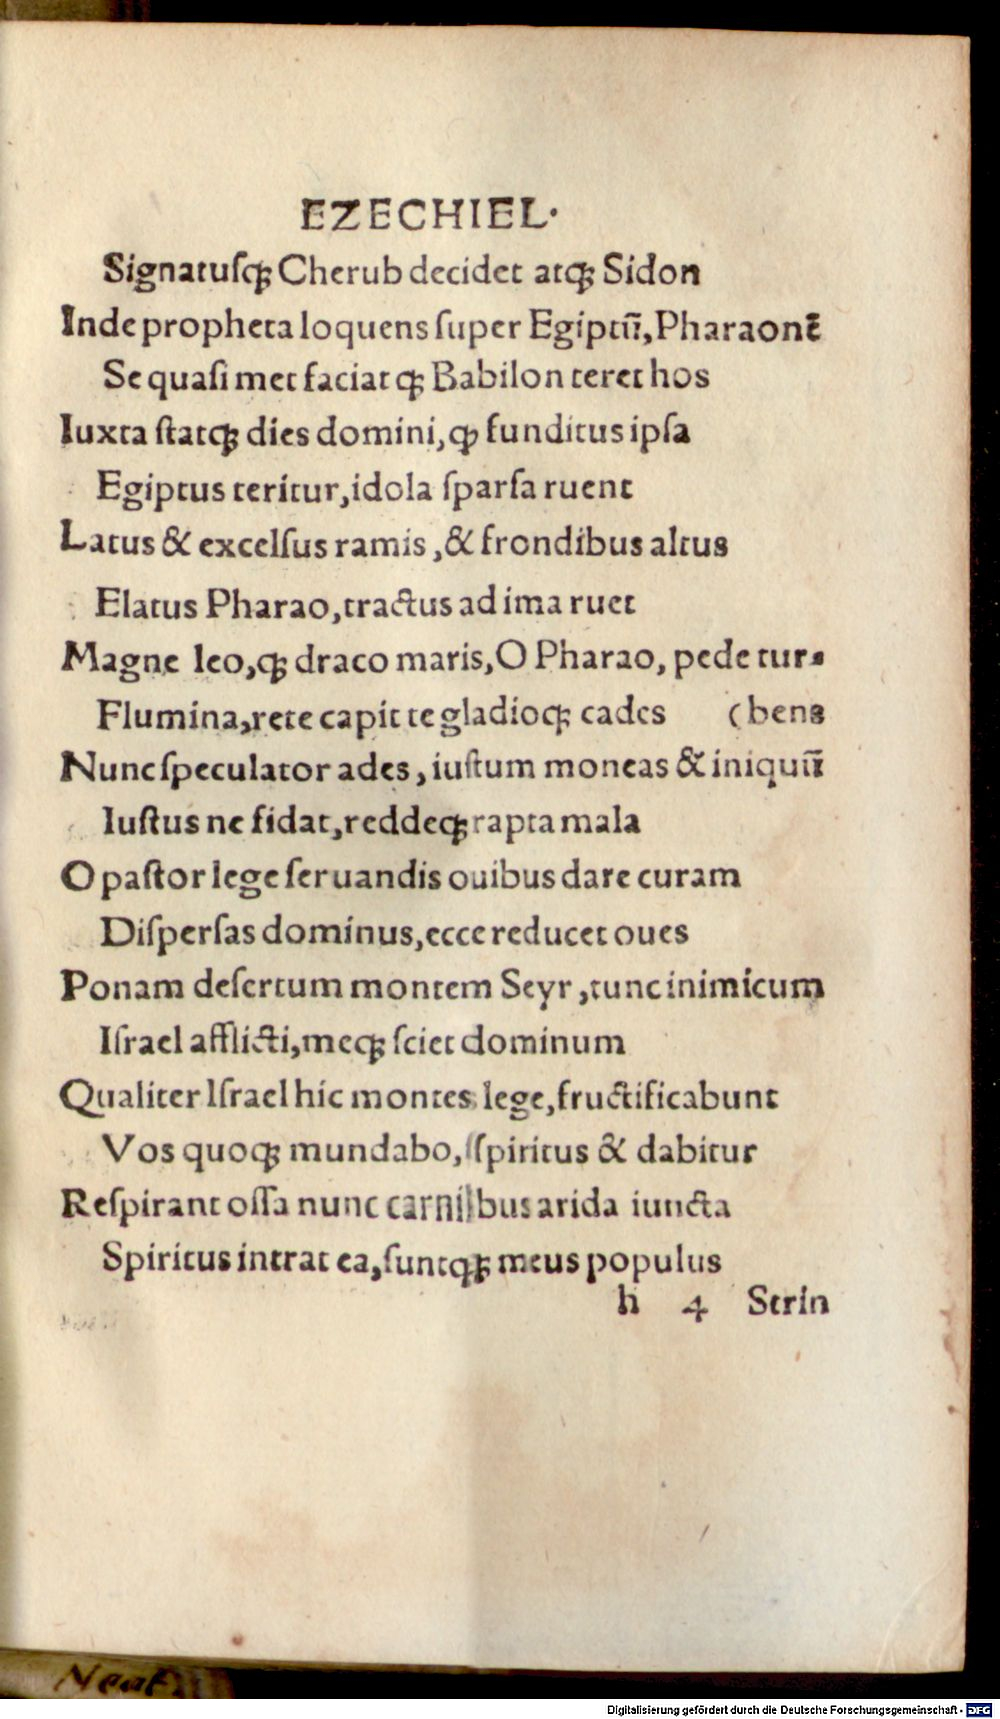 EZECHIEL·
Signatusqꝫ Cherub decidet atqꝫ Sidon
Inde propheta loquens super Egiptū, Pharaonē
Se quasi met faciat qꝫ Babilon teret hos
Iuxta statqꝫ dies domini, ꝙ funditus ipsa
Egiptus teritur, idola sparsa ruent
Latus & excelsus ramis, & frondibus altus
Elatus Pharao, tractus ad ima ruet
Magne leo, qꝫ draco maris, O Pharao, pede tur⸗
Flumina, rete capit te gladioqꝫ cades (bens
Nunc speculator ades, iustum moneas & iniquū
Iustus ne fidat, reddeqꝫ rapta mala
O pastor lege seruandis ouibus dare curam
Dispersas dominus, ecce reducet oues
Ponam desertum montem Seyr, tunc inimicum
Israel afflicti, meqꝫ sciet dominum
Qualiter Israel hic montes lege, fructificabunt
Vos quoqꝫ mundabo, spiritus & dabitur
Respirant ossa nunc carnibus arida iuncta
Spiritus intrat ea, suntqꝫ meus populus
h 4 Strin
Digitalisierung gefördert durch die Deutsche Forschungsgemeinschaft - DFG